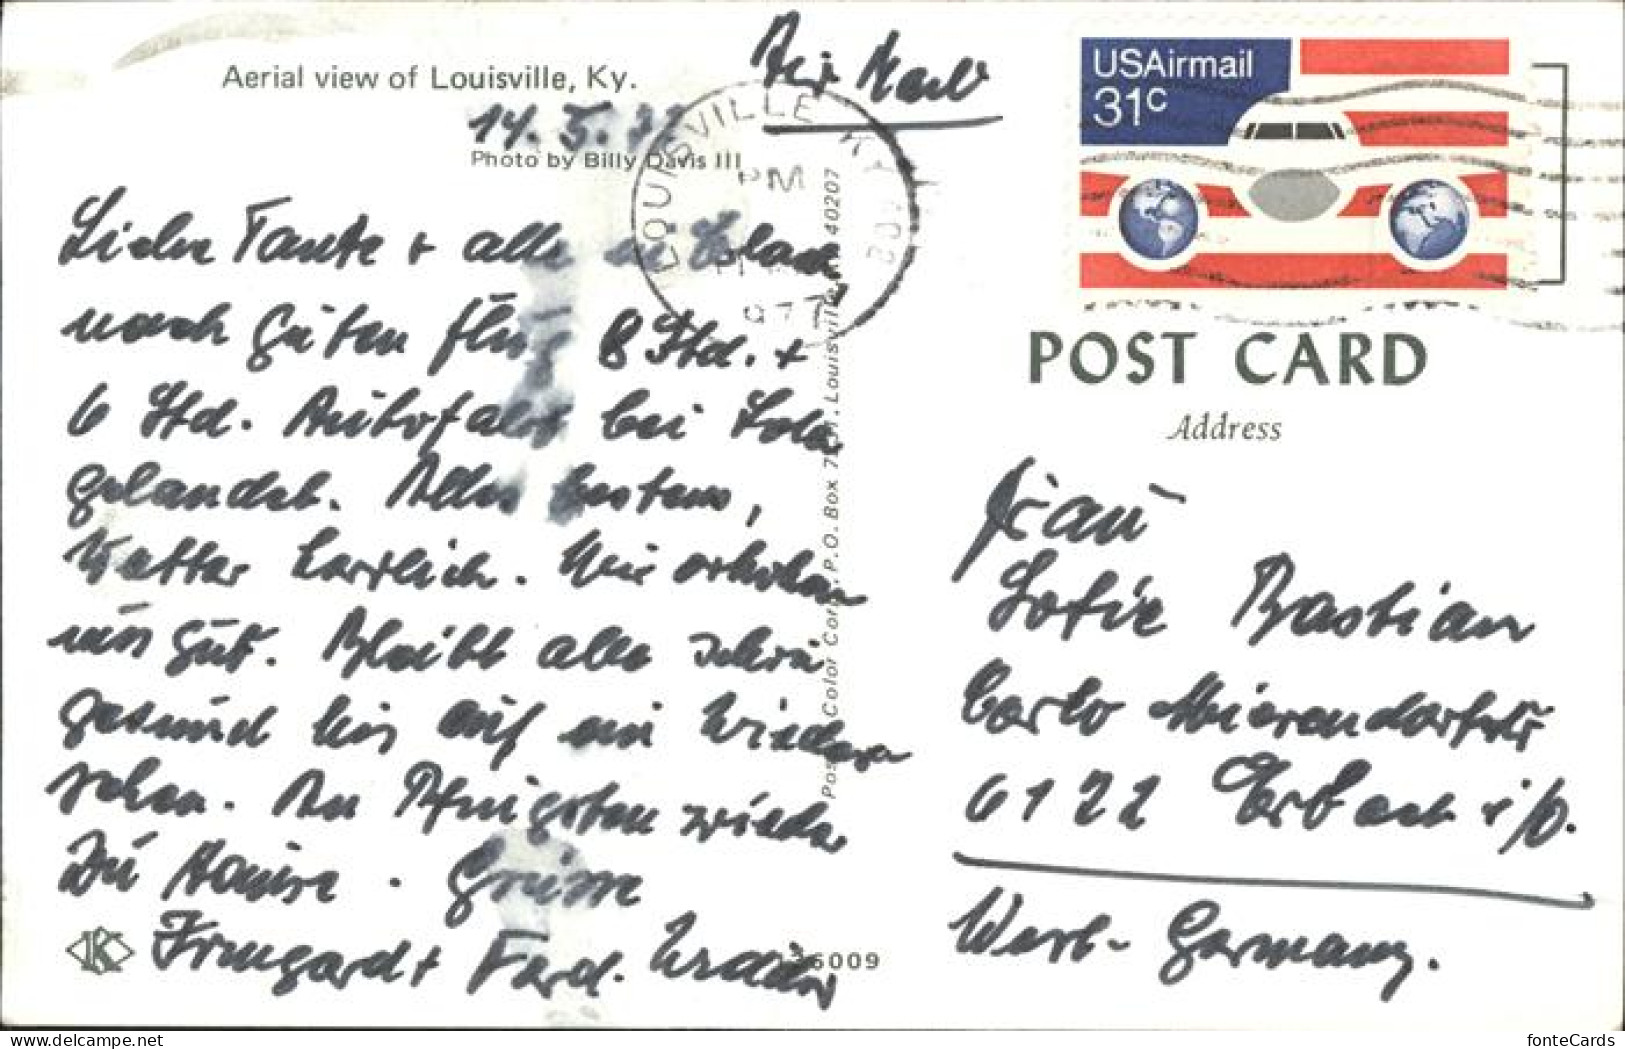 Aerial view of Louisville, Ky.
14. 5. 
Photo by Billy Davis III
Air Mail
LOUISVILLE KY 402
PM
977
USAirmail
31c
POST CARD
Address
Liebe Tante + alle in
nach guten Flug 8 Std. +
6 Std. Autofahrt bei Lola
gelandet. Alles bestens,
Wetter herrlich. Wir erholen
uns gut. Bleibt alle schön
gesund bis auf ein Wieder
sehen. An Pfingsten wieder
zu Hause. Grüsse
Irmgard + Ferd.
Post Color Corp., P.O. Box Louisville, 40207
K
6009
Frau
Sofie Bastian
Carlo Mierendorfstr
6122 Erbach i/O.
West-Germany.
fonteCards